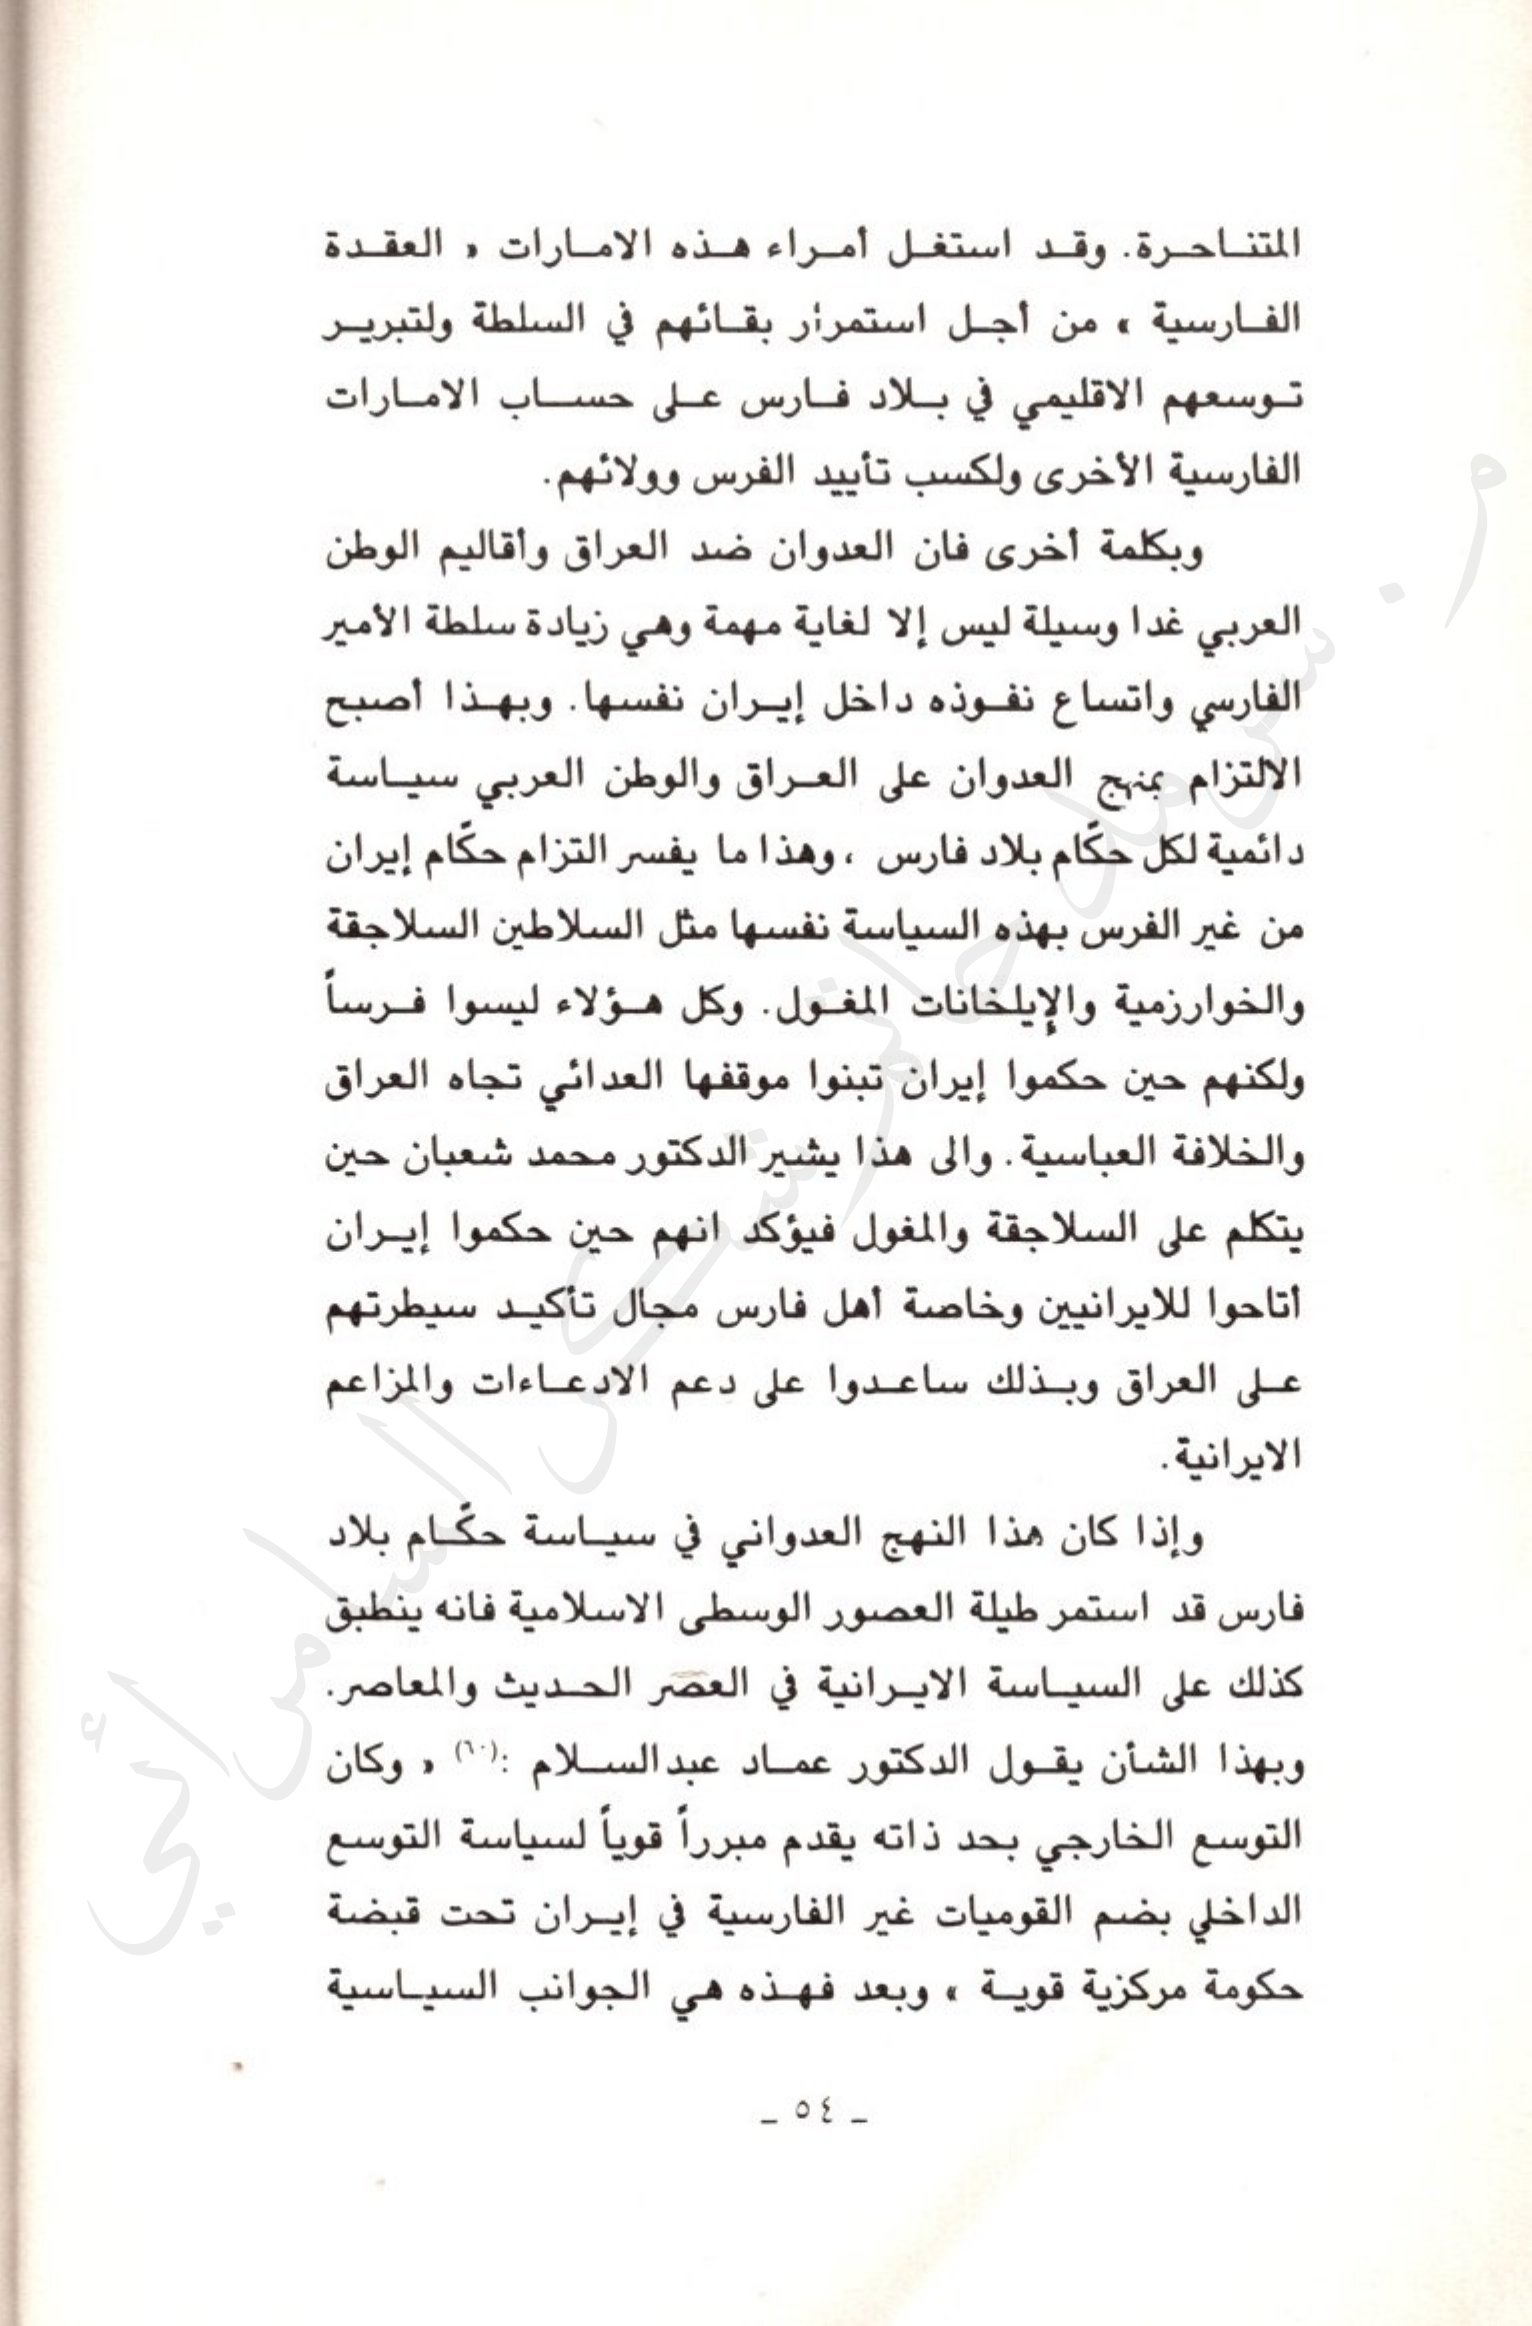 المتناحرة. وقد استغل أمراء هذه الامارات « العقدة
الفارسية » من أجل استمرار بقائهم في السلطة ولتبرير
توسعهم الاقليمي في بلاد فارس على حساب الامارات
الفارسية الأخرى ولكسب تأييد الفرس وولائهم.
وبكلمة أخرى فان العدوان ضد العراق وأقاليم الوطن
العربي غدا وسيلة ليس إلا لغاية مهمة وهي زيادة سلطة الأمير
الفارسي واتساع نفوذه داخل إيران نفسها. وبهذا أصبح
الالتزام بمنهج العدوان على العراق والوطن العربي سياسة
دائمية لكل حكّام بلاد فارس ، وهذا ما يفسر التزام حكّام إيران
من غير الفرس بهذه السياسة نفسها مثل السلاطين السلاجقة
والخوارزمية والإيلخانات المغول. وكل هؤلاء ليسوا فرساً
ولكنهم حين حكموا إيران تبنوا موقفها العدائي تجاه العراق
والخلافة العباسية. والى هذا يشير الدكتور محمد شعبان حين
يتكلم على السلاجقة والمغول فيؤكد انهم حين حكموا إيران
أتاحوا للايرانيين وخاصة أهل فارس مجال تأكيد سيطرتهم
على العراق وبذلك ساعدوا على دعم الادعاءات والمزاعم
الايرانية.
وإذا كان هذا النهج العدواني في سياسة حكّام بلاد
فارس قد استمر طيلة العصور الوسطى الاسلامية فانه ينطبق
كذلك على السياسة الايرانية في العصر الحديث والمعاصر.
وبهذا الشأن يقول الدكتور عماد عبدالسلام :(٦٠) « وكان
التوسع الخارجي بحد ذاته يقدم مبرراً قوياً لسياسة التوسع
الداخلي بضم القوميات غير الفارسية في إيران تحت قبضة
حكومة مركزية قوية » وبعد فهذه هي الجوانب السياسية
ـ ٥٤ ـ
م. سرمد حاتم شكر السامرائي